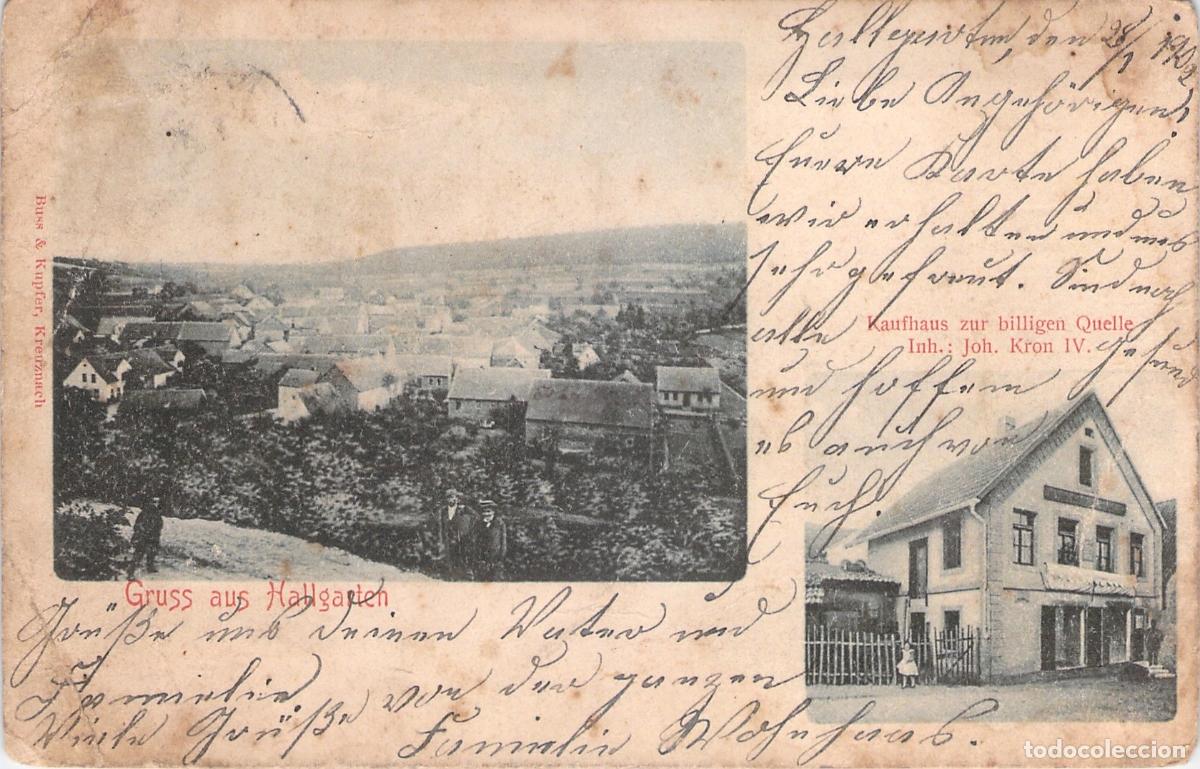 Hallgarten, den 28/1 190
Liebe Angehörigen!
Euere Karte haben
wir erhalten und uns
sehr gefreut. Sind noch
alle gesund
und hoffem
es auch von
Euch.
Kaufhaus zur billigen Quelle
Inh.: Joh. Kron IV.
Buss & Kupfer, Kreuznach
Gruss aus Hallgarten
Grüße uns deinen Vater und
Familie
Viele Grüße von der ganzen
Familie Wohnhas.
todocoleccion